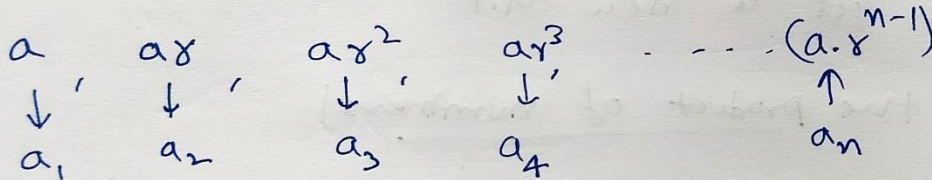 a , ar , ar² , ar³ , . - - . (a.rⁿ⁻¹)
↓ ↓ ↓ ↓ ↑
a₁ a₂ a₃ a₄ aₙ